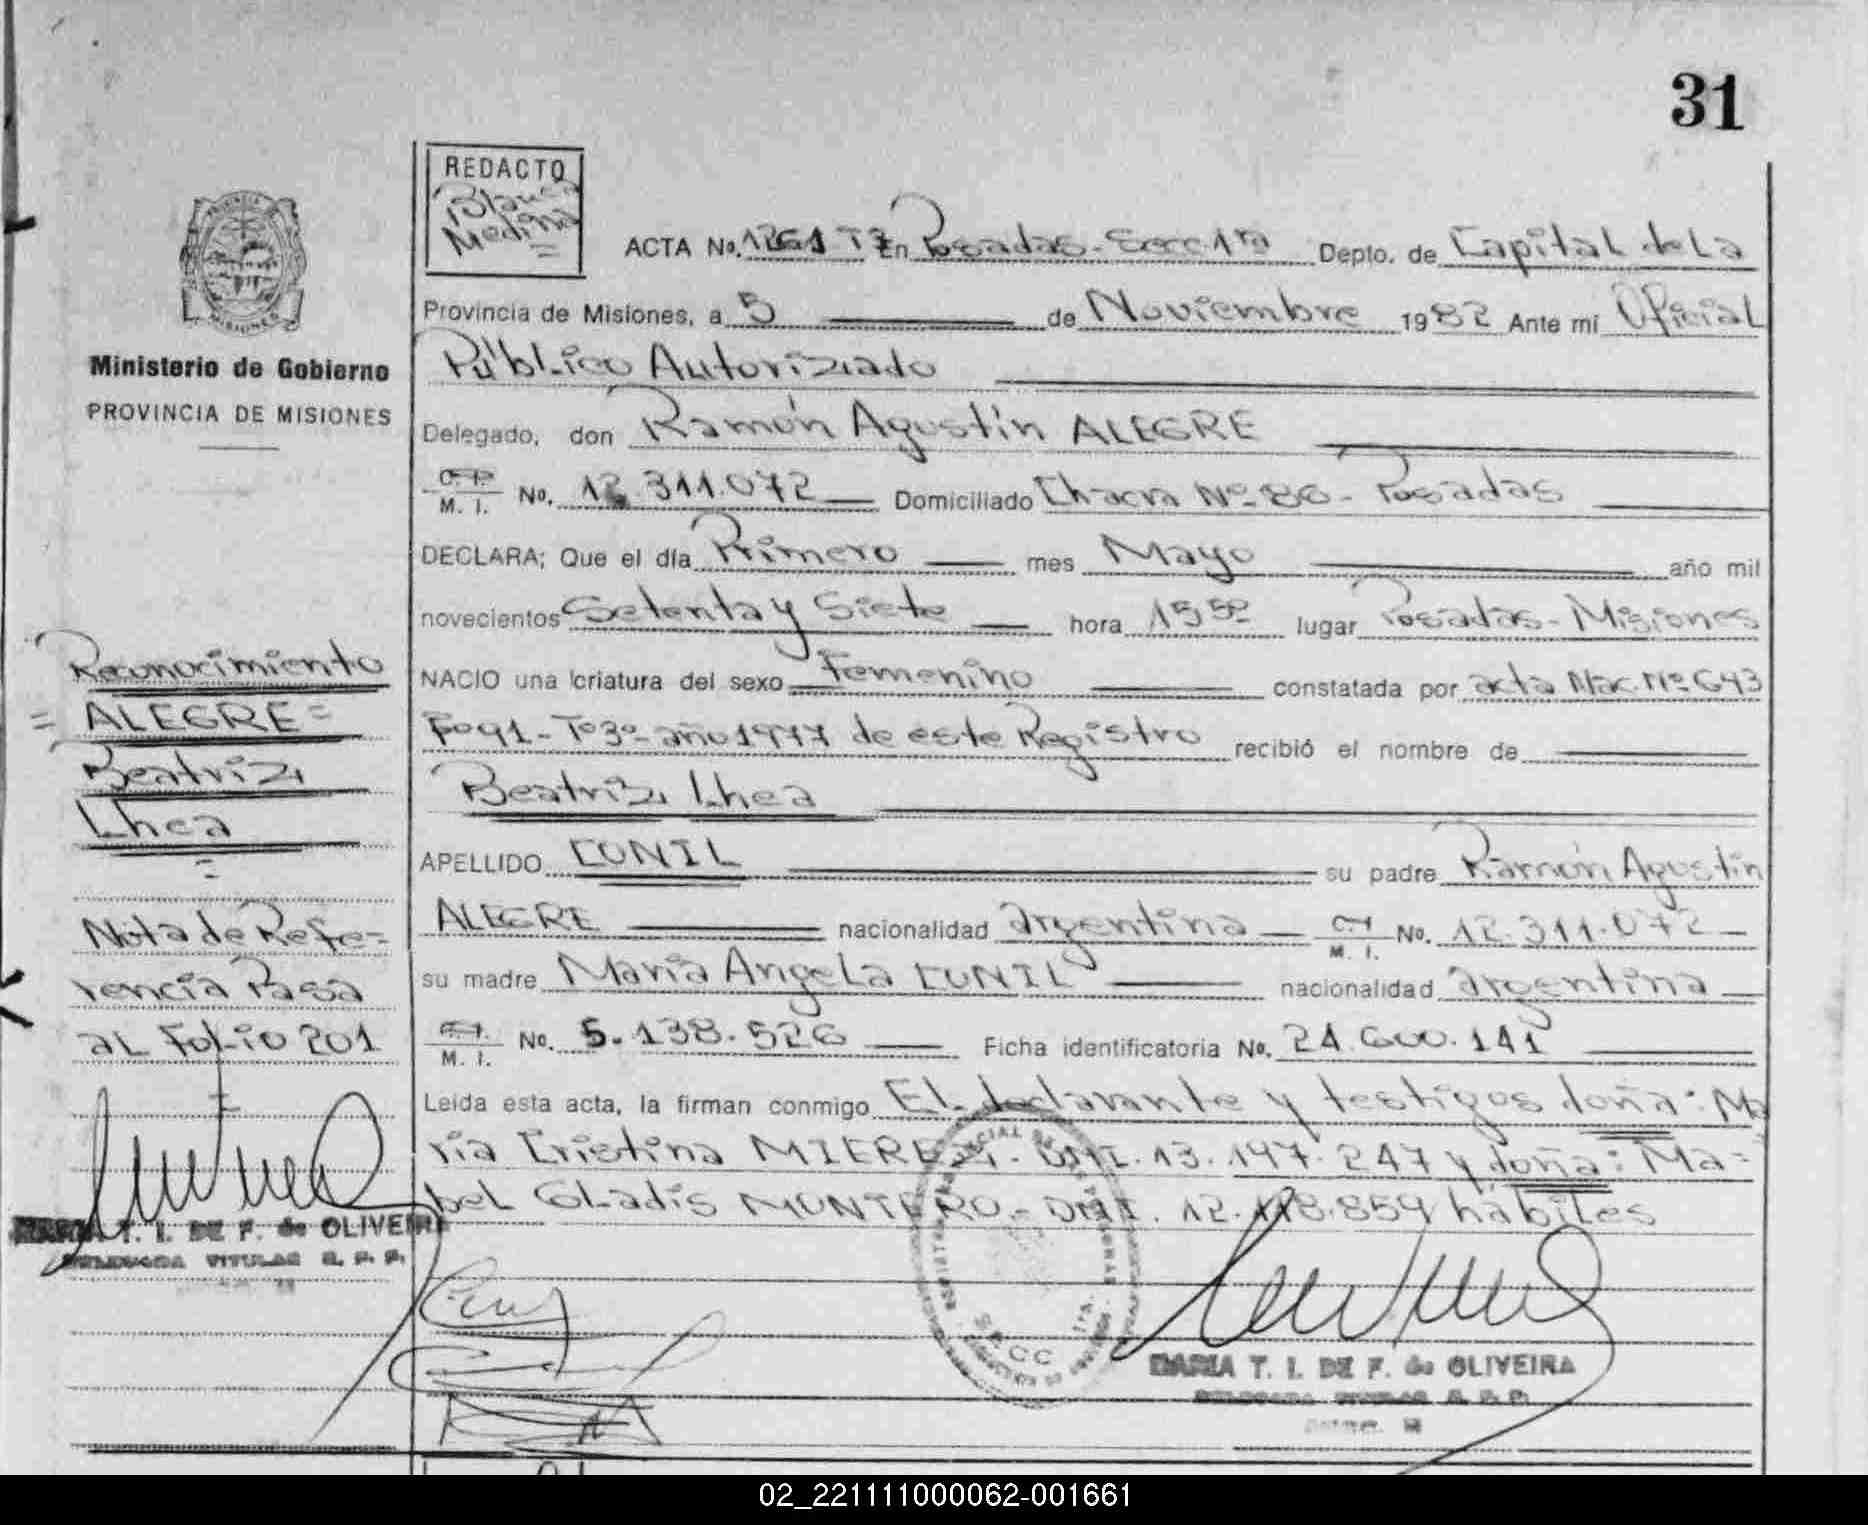 31
REDACTO
Blanca
Medina
ACTA No. 1261 T7 En Posadas - Secc 1ra Depto. de Capital de la
Provincia de Misiones, a 5 de Noviembre 1982 Ante mi Oficial
Público Autorizado
Delegado, don Ramón Agustín ALEGRE
M. I. No. 12.311.072 Domiciliado Chacra Nº 86 - Posadas
DECLARA; Que el día Primero mes Mayo año mil
novecientos Setenta y Siete hora 15 50 lugar Posadas - Misiones
NACIO una criatura del sexo Femenino constatada por acta Nac. Nº 643
Fº 91 - Tº 3º año 1977 de este Registro recibió el nombre de
Beatriz Lhea
APELLIDO CUNIL su padre Ramón Agustín
ALEGRE nacionalidad argentina M. I. No. 12.311.072
su madre María Angela CUNIL nacionalidad argentina
M. I. No. 5.138.526 Ficha identificatoria No. 24.600.141
Leída esta acta, la firman conmigo El declarante y testigos doña: Ma
ria Cristina MIEREZ - DNI. 13.197.247 y doña: Ma=
bel Gladis MONTERO - DNI. 12.118.859 hábiles
MARIA T. I. DE F. de OLIVEIRA
DELEGADA TITULAR R. P. P.
Ministerio de Gobierno
PROVINCIA DE MISIONES
Reconocimiento
= ALEGRE =
Beatriz
Lhea
=
Nota de Refe=
rencia Pasa
al Folio 201
MARIA T. I. DE F. de OLIVEIRA
DELEGADA TITULAR R. P. P.
02_221111000062-001661